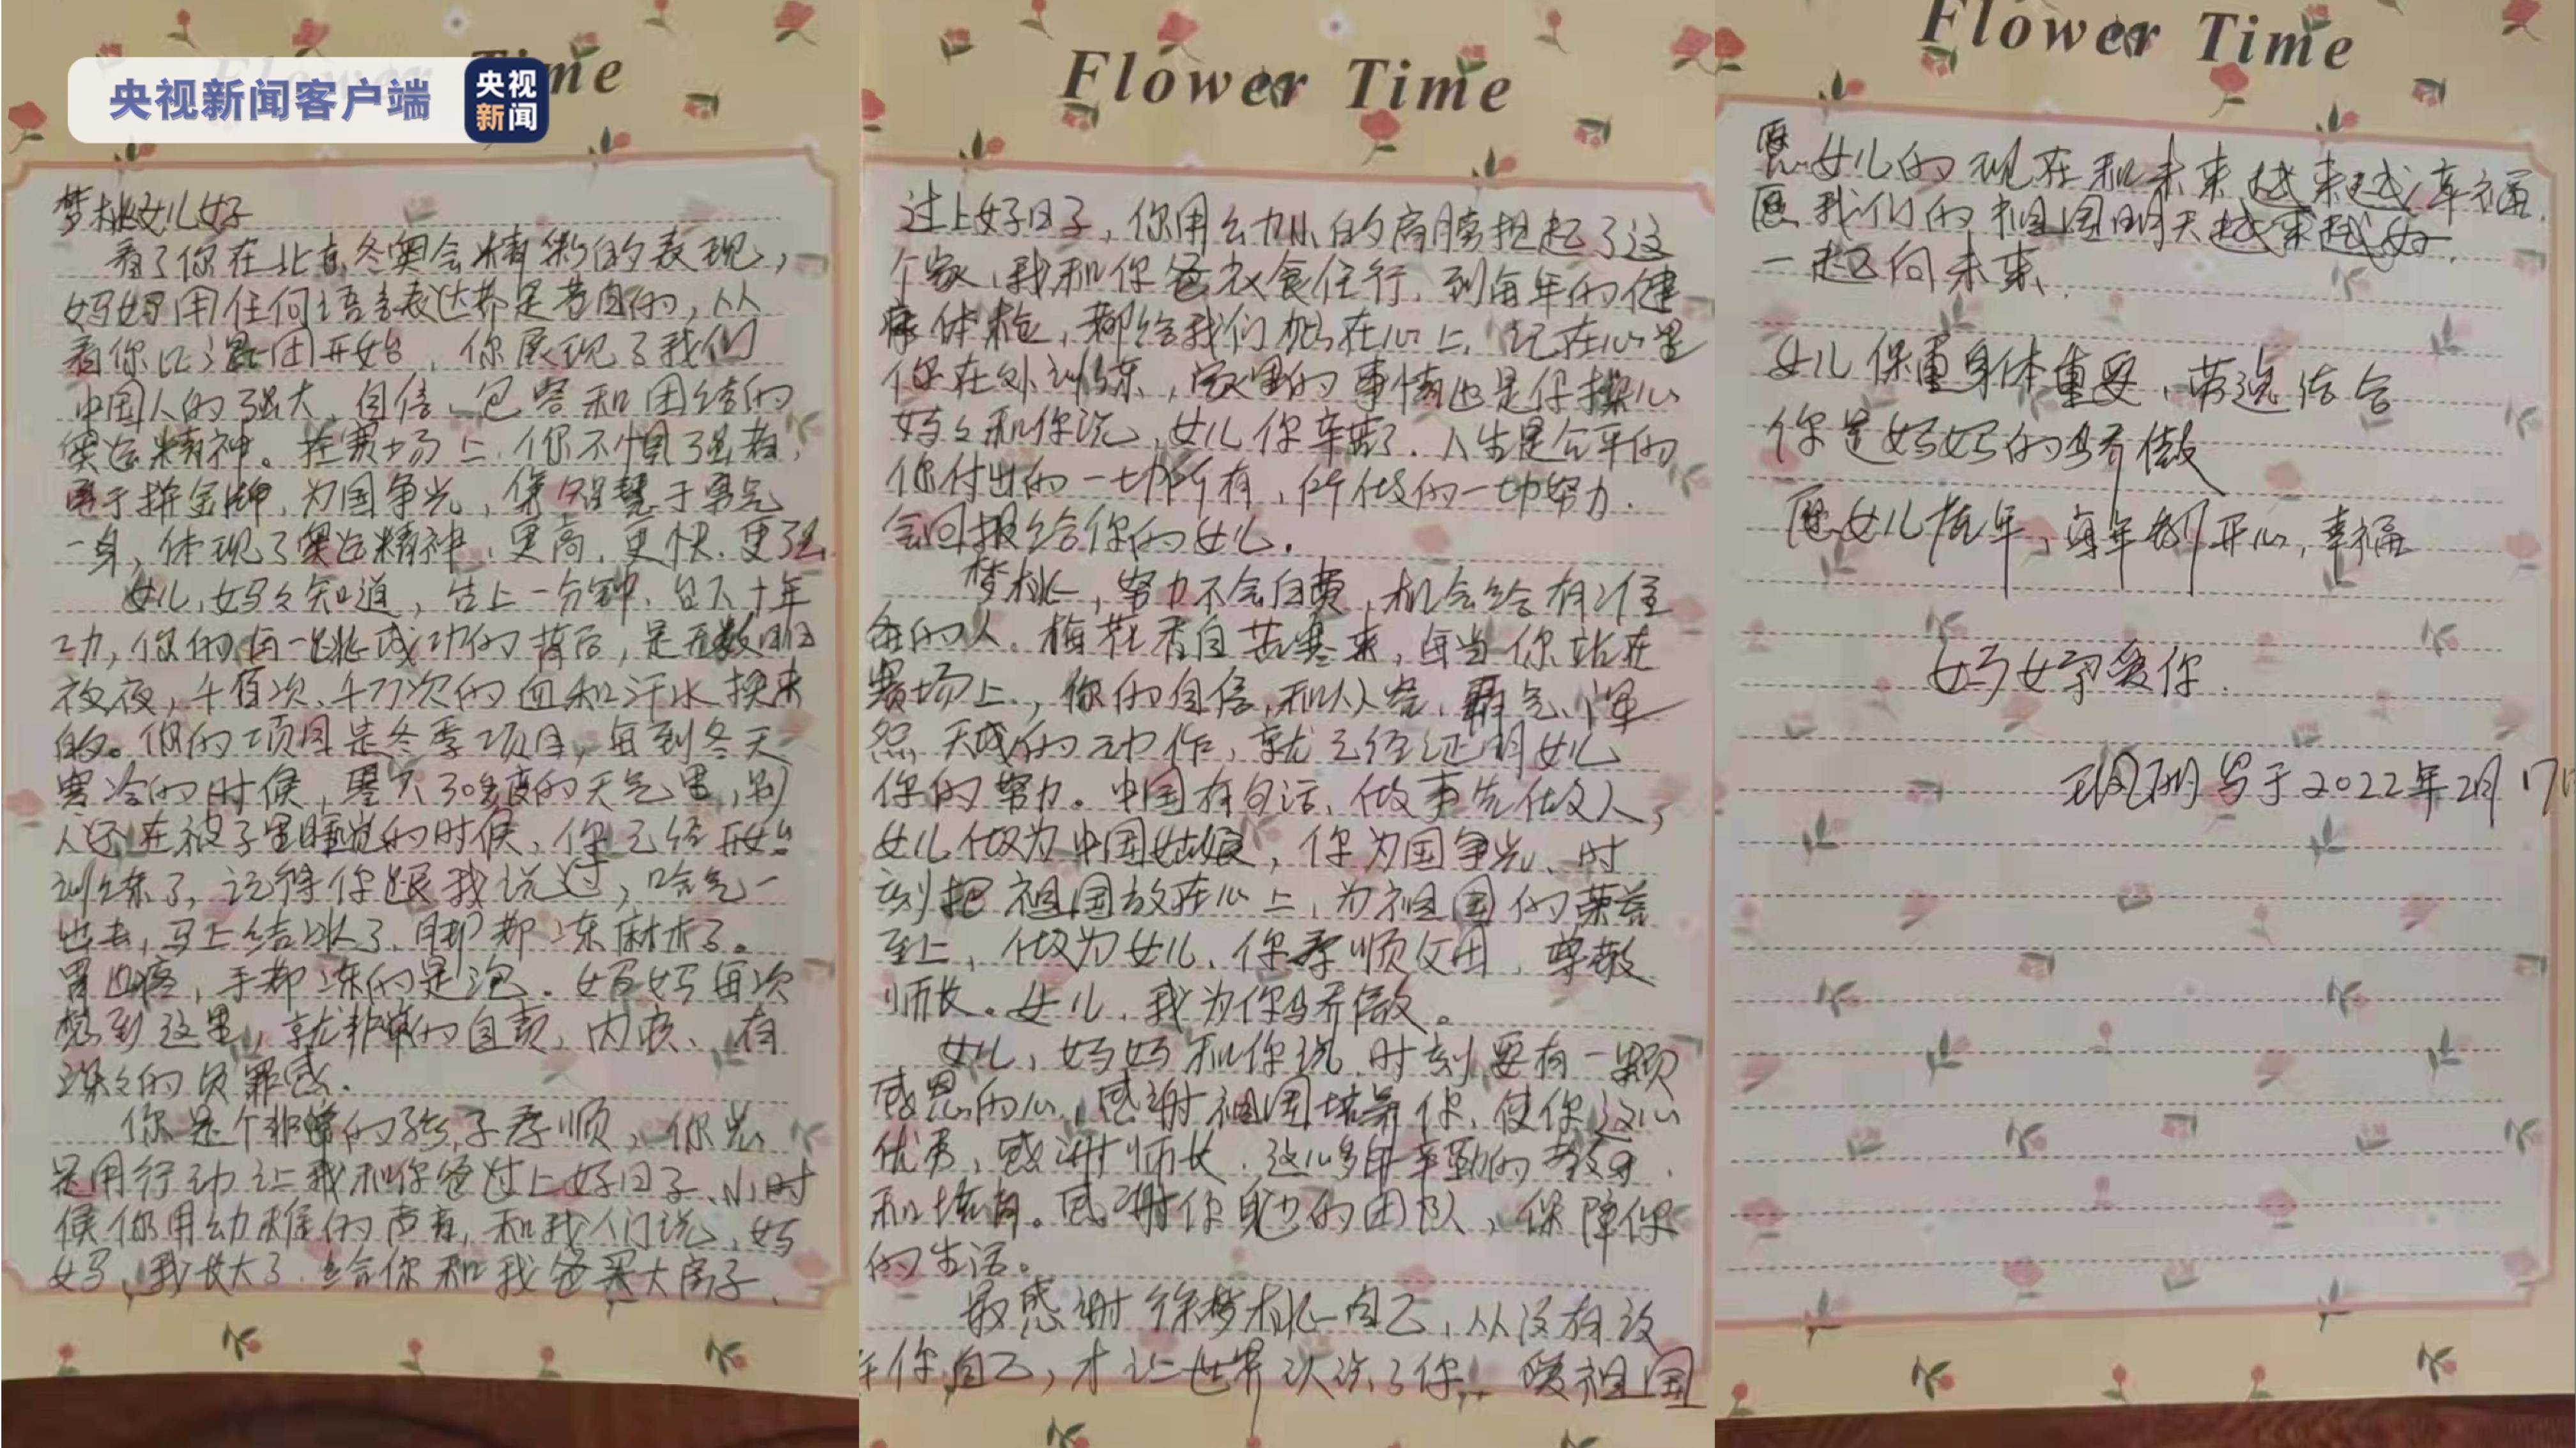 央视新闻客户端
央视
新闻
Flower Time
梦桃女儿好
看了你在北京冬奥会精彩的表现，
妈妈用任何语言表达都是苍白的，从
看你比混团开始，你展现了我们
中国人的强大、自信、包容和团结的
奥运精神。在赛场上，你不惧强者，
勇于拼金牌，为国争光，集智慧于勇气
一身，体现了奥运精神、更高、更快、更强
女儿，妈妈知道，台上一分钟、台下十年
功，你的每一跳成功的背后，是无数日日
夜夜，千百次、千万次的血和汗水换来
的。你的项目是冬季项目，每到冬天
寒冷的时候，零下30多度的天气里，别
人还在被子里睡觉的时候、你已经开始
训练了，记得你跟我说过，哈气一
出去，马上结冰了，脚都冻麻木了。
胃也疼，手都冻的是泡。妈妈每次
想到这里，就非常的自责，内疚、有
深深的负罪感.
你是个非常的孩子孝顺，你总
是用行动让我和你爸过上好日子、小时
候你用幼稚的声音，和我们说，妈
妈，我长大了，给你和我爸买大房子、
Flower Time
过上好日子，你用幼小的肩膀担起了这
个家，我和你爸衣食住行，到每年的健
康体检，都给我们放在心上，记在心里
你在外训练，家里的事情也是你操心
妈妈和你说，女儿你辛苦了.人生是公平的
你付出的一切所有，所做的一切努力.
会回报给你的女儿.
梦桃，努力不会白费，机会给有准
备的人.梅花香自苦寒来，每当你站在
赛场上，你的自信，和从容，霸气、浑
然天成的动作，就已经证明女儿
你的努力。中国有句话、做事先做人，
女儿做为中国姑娘，你为国争光、时
刻把祖国放在心上，为祖国的荣誉
至上，做为女儿、你孝顺父母，尊敬
师长。女儿，我为你骄傲。
女儿，妈妈和你说，时刻要有一颗
感恩的心，感谢祖国培养你，使你这么
优秀，感谢师长，这么多年辛勤的教导.
和培育。感谢你身边的团队，保障你
的生活。
最感谢徐梦桃自己，从没有放
弃你自己，才让世界认识了你，愿祖国
Flower Time
愿女儿的现在和未来越来越幸福.
愿我们的祖国明天越来越好.
一起向未来、
女儿保重身体重要，劳逸结合
你是妈妈的骄傲
愿女儿虎年，每年都开心，幸福
妈妈爱你.
写于2022年2月17